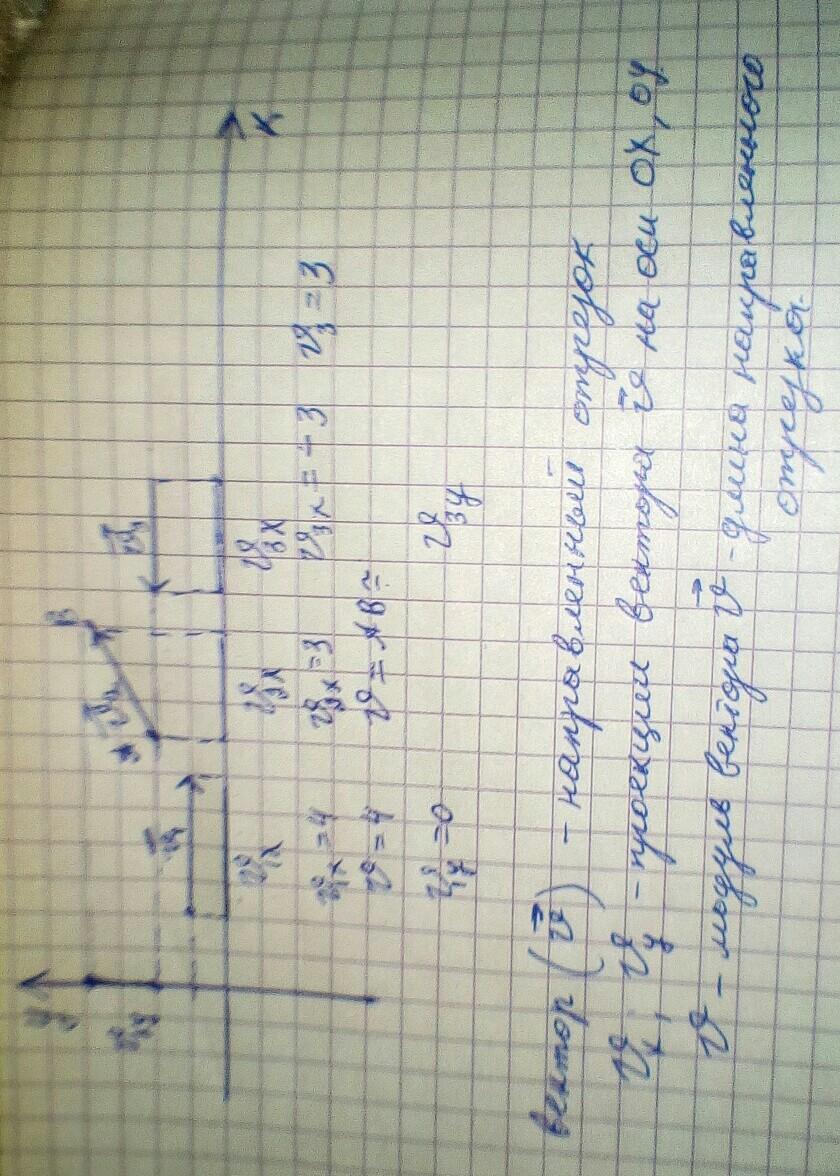 y
x
A
B
v⃗₁
v⃗₂
v⃗₃
v₂y
v₁x
v₁x = 4
v = 4
v₁y = 0
v₃x = 3
v = AB =
v₃x
v₃x = -3
v₃ = 3
v₃y
вектор (v⃗) – направленный отрезок
vₓ, vᵧ – проекции вектора v⃗ на оси ОХ, ОУ
v – модуль вектора v⃗ - длина направленного
отрезка.